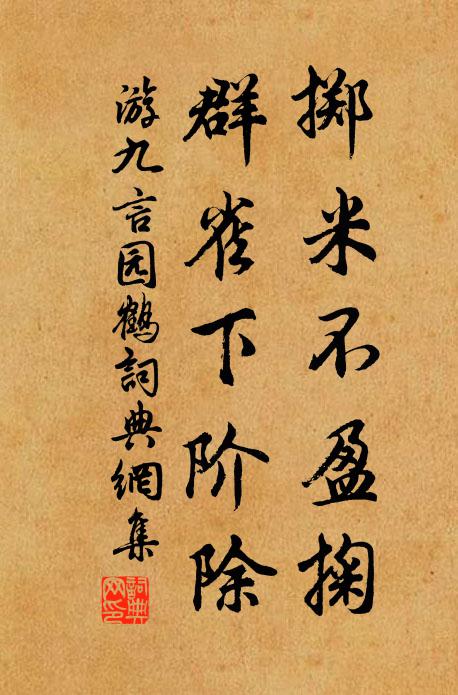 掷米不盈掬
群雀下阶除
游九言园鹤詞典網集
詞典网印